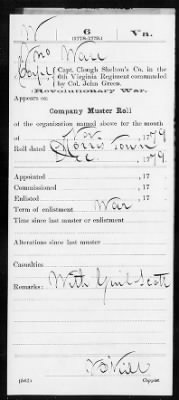 W 6 Va.
(1777-1778.)
Wall
Capt. Clough Shelton's Co., in the
6th Virginia Regiment commanded
by Col. John Green.
Revolutionary War.
Appears on
Company Muster Roll
of the organization named above for the month
of Nov , 1779
Roll dated Morris Town
Dec , 1779
Appointed , 17
Commissioned , 17
Enlisted , 17
Term of enlistment War
Time since last muster or enlistment
Alterations since last muster
Casualties
Remarks: With Genl Scott
(543)
Copyist.